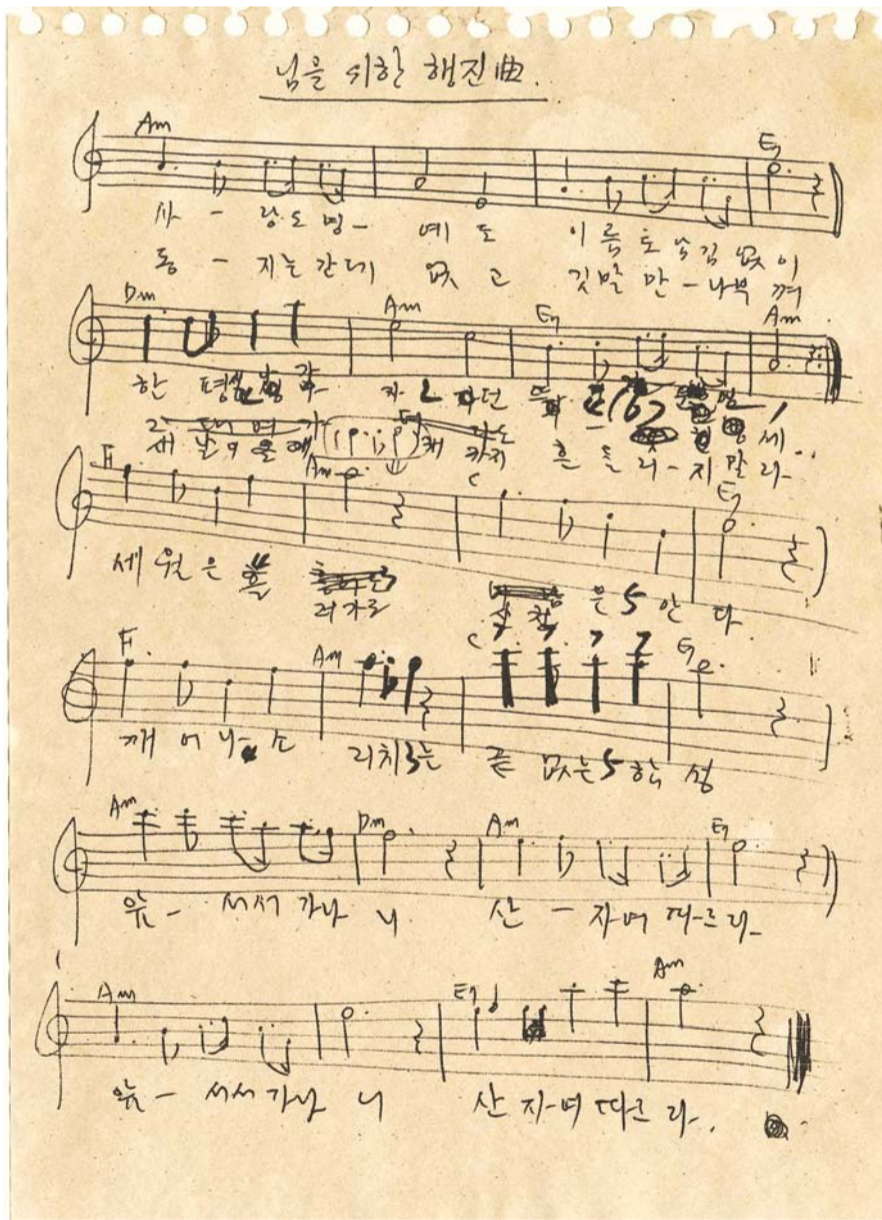 님을 위한 행진曲.
Am E7
사 - 랑도 명 - 예 도 이 름도 남김 없 이
동 - 지는 간데 없 고 깃발 만 - 나부 껴
Dm Am E7 Am
한 평생 나가 자 던
새 날이 올 때 까지 흔 들 리 - 지 말 라 -
F Am C E7
세 월 은 흘 러 가도 산 천 은 안 다
F Am C E7
깨 어 나 소 리치는 끝 없는 함 성
Am Dm Am E7
앞 - 서서 가나 니 산 - 자여 따 - 르 라 -
Am E7 Am
앞 - 서서 가나 니 산 자 - 여 따르 라 - .